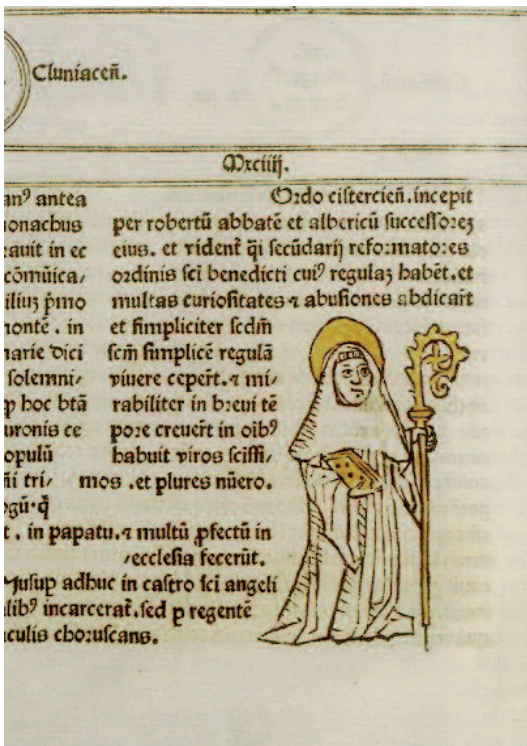 Cluniaceñ.
Mxciiij.
anꝰ antea
onachus
rauit in ec
cõmũica⸗
iliuʒ p̃mo
montē . in
marie dici
solemni⸗
ꝑ hoc btã
uronis ce
opulũ
ñi tri⸗
ogũ·q̃
Ordo cistercieñ. incepit
per robertũ abbatē et albericũ successoreʒ
eius. et vident̃ q̃i secũdarij reformatores
ordinis sci benedicti cuiꝰ regulaʒ habēt. et
multas curiositates ⁊ abusiones abdicar̃t
et simpliciter scd̃m
scm̃ simplicē regulã
viuere ceper̃t. ⁊ mi⸗
rabiliter in breui tē
pore creuer̃t in oĩbꝰ
habuit viros scissi⸗
mos . et plures nũero.
t . in papatu. ⁊ multũ ꝓfectũ in
⸗ecclesia fecerũt.
adhuc in castro sci angeli
alibꝰ incarcerat̃. sed ꝑ regentē
aculis choruscans.